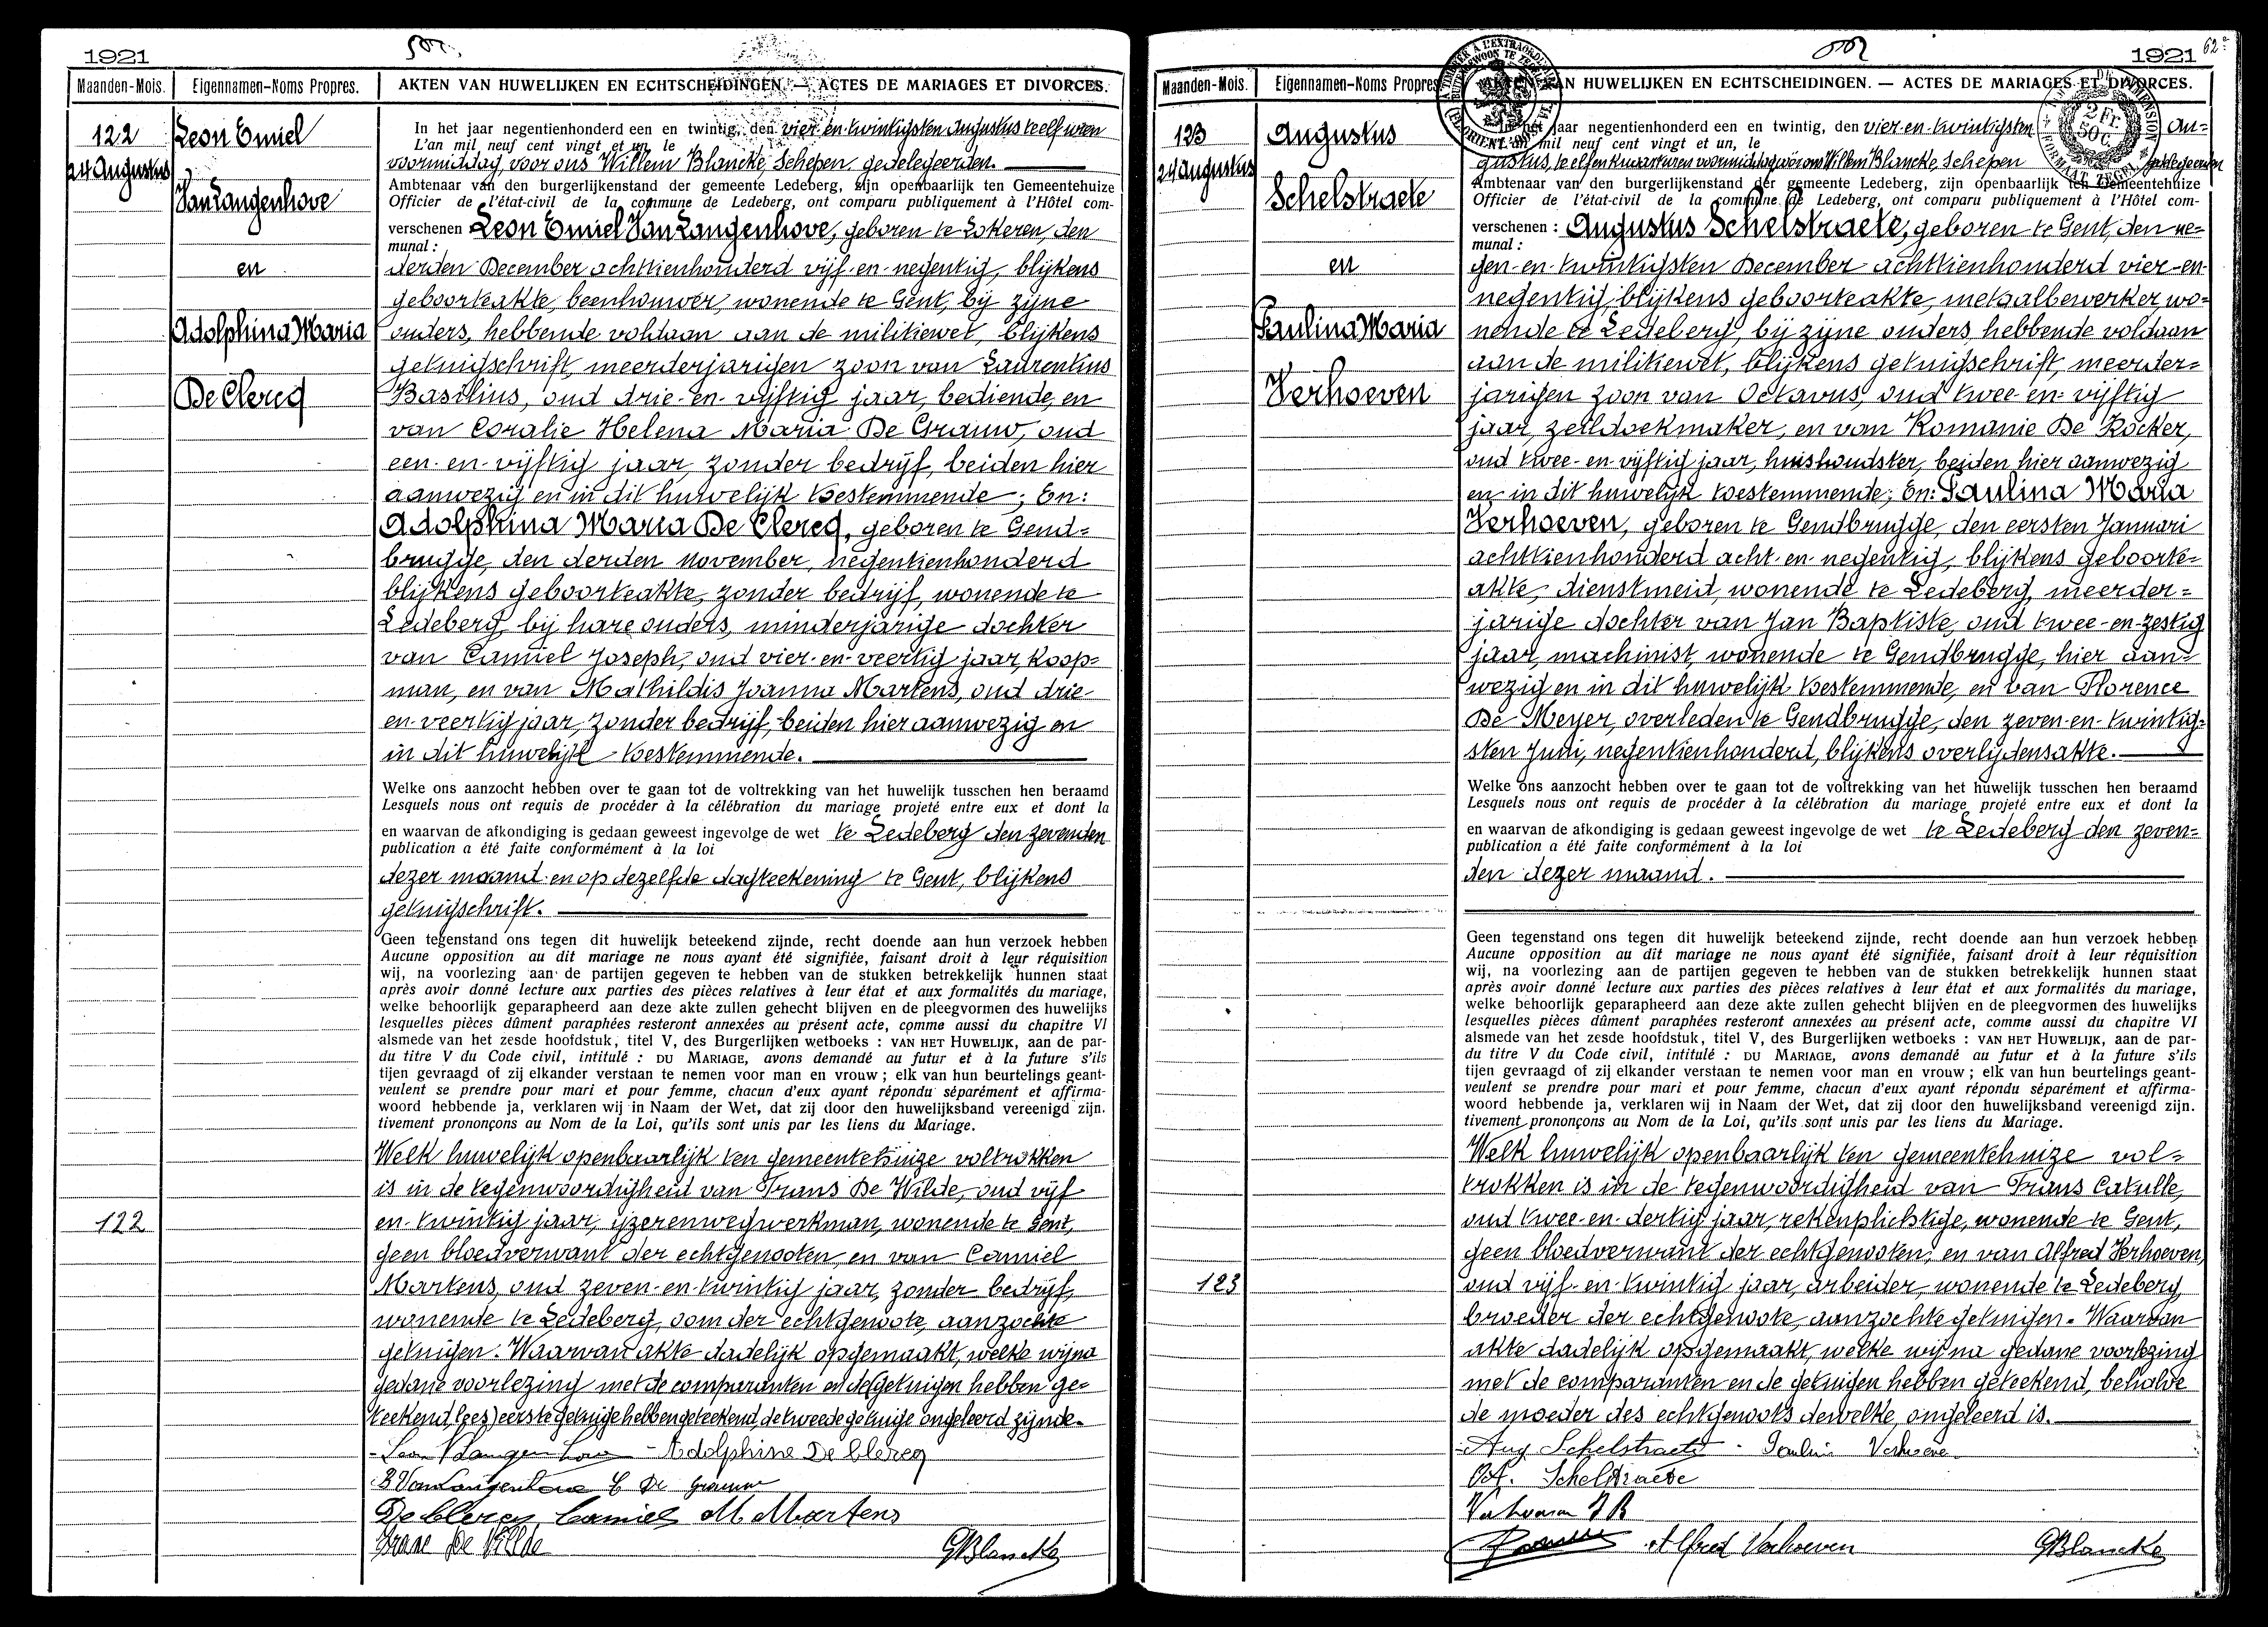 1921
Maanden-Mois. Eigennamen-Noms Propres. AKTEN VAN HUWELIJKEN EN ECHTSCHEIDINGEN. — ACTES DE MARIAGES ET DIVORCES.
122
24 Augustus
Leon Emiel
Van Langenhove
en
Adolphina Maria
De Clercq
In het jaar negentienhonderd een en twintig, den vier-en-twintigsten Augustus te elf uren
L'an mil neuf cent vingt et un, le
voormiddag, voor ons Willem Blancke, Schepen gedelegeerden.
Ambtenaar van den burgerlijkenstand der gemeente Ledeberg, zijn openbaarlijk ten Gemeentehuize
Officier de l'état-civil de la commune de Ledeberg, ont comparu publiquement à l'Hôtel com-
verschenen Leon Emiel Van Langenhove, geboren te Lokeren, den
munal :
derden December achttienhonderd vijf-en-negentig, blijkens
geboorteakte, beenhouwer, wonende te Gent, bij zijne
ouders, hebbende voldaan aan de militiewet, blijkens
getuigschrift, meerderjarigen zoon van Laurentius
Basilius, oud drie-en-vijftig jaar, bediende, en
van Coralie Helena Maria De Grauw, oud
een-en-vijftig jaar, zonder bedrijf, beiden hier
aanwezig en in dit huwelijk toestemmende; En:
Adolphina Maria De Clercq, geboren te Gend=
brugge, den derden November, negentienhonderd
blijkens geboorteakte, zonder bedrijf, wonende te
Ledeberg, bij hare ouders, minderjarige dochter
van Camiel Joseph, oud vier-en-veertig jaar, koop=
man, en van Mathildis Joanna Martens, oud drie-
en-veertig jaar, zonder bedrijf, beiden hier aanwezig en
in dit huwelijk toestemmende.
Welke ons aanzocht hebben over te gaan tot de voltrekking van het huwelijk tusschen hen beraamd
Lesquels nous ont requis de procéder à la célébration du mariage projeté entre eux et dont la
en waarvan de afkondiging is gedaan geweest ingevolge de wet te Ledeberg den zevenden
publication a été faite conformément à la loi
dezer maand en op dezelfde dagteekening te Gent, blijkens
getuigschrift.
Geen tegenstand ons tegen dit huwelijk beteekend zijnde, recht doende aan hun verzoek hebben
Aucune opposition au dit mariage ne nous ayant été signifiée, faisant droit à leur réquisition
wij, na voorlezing aan de partijen gegeven te hebben van de stukken betrekkelijk hunnen staat
après avoir donné lecture aux parties des pièces relatives à leur état et aux formalités du mariage,
welke behoorlijk geparapheerd aan deze akte zullen gehecht blijven en de pleegvormen des huwelijks
lesquelles pièces dûment paraphées resteront annexées au présent acte, comme aussi du chapitre VI
alsmede van het zesde hoofdstuk, titel V, des Burgerlijken wetboeks : VAN HET HUWELIJK, aan de par-
du titre V du Code civil, intitulé : DU MARIAGE, avons demandé au futur et à la future s'ils
tijen gevraagd of zij elkander verstaan te nemen voor man en vrouw ; elk van hun beurtelings geant-
veulent se prendre pour mari et pour femme, chacun d'eux ayant répondu séparément et affirma-
woord hebbende ja, verklaren wij in Naam der Wet, dat zij door den huwelijksband vereenigd zijn.
tivement prononçons au Nom de la Loi, qu'ils sont unis par les liens du Mariage.
Welk huwelijk openbaarlijk ten gemeentehuize voltrokken
is in de tegenwoordigheid van Frans De Wilde, oud vijf
122
en-twintig jaar, ijzerenwegwerkman, wonende te Gent,
geen bloedverwant der echtgenooten, en van Camiel
Martens, oud zeven-en-twintig jaar, zonder bedrijf,
wonende te Ledeberg, oom der echtgenoote, aanzochte
getuigen. Waarvan akte dadelijk opgemaakt, welke wij na
gedane voorlezing met de comparanten en de getuigen hebben ge=
teekend, (lees) eerste getuige hebben geteekend, de tweede getuige ongeleerd zijnde.
Leon VLangenhove Adolphine De Clercq
B VanLangenhove C De Grauw
De Clercq Camiel M Martens
Frans De Wilde GBlancke
1921
62e
Maanden-Mois. Eigennamen-Noms Propres AKTEN VAN HUWELIJKEN EN ECHTSCHEIDINGEN. — ACTES DE MARIAGES ET DIVORCES.
2 Fr. 50 C.
123
24 Augustus
Augustus
Schelstraete
en
Paulina Maria
Verhoeven
In het jaar negentienhonderd een en twintig, den vier-en-twintigsten Au=
L'an mil neuf cent vingt et un, le
gustus, te elf en kwart uren voormiddag voor ons Willem Blancke, Schepen gedelegeerden
Ambtenaar van den burgerlijkenstand der gemeente Ledeberg, zijn openbaarlijk ten Gemeentehuize
Officier de l'état-civil de la commune de Ledeberg, ont comparu publiquement à l'Hôtel com-
verschenen : Augustus Schelstraete, geboren te Gent, den ne=
munal :
gen-en-twintigsten December achttienhonderd vier-en-
negentig, blijkens geboorteakte, metaalbewerker, wo=
nende te Ledeberg, bij zijne ouders, hebbende voldaan
aan de militiewet, blijkens getuigschrift, meerder=
jarigen zoon van Octavus, oud twee-en-vijftig
jaar, zeildoekmaker, en van Romanie De Kocker,
oud twee-en-vijftig jaar, huishoudster, beiden hier aanwezig
en in dit huwelijk toestemmende; En: Paulina Maria
Verhoeven, geboren te Gendbrugge, den eersten Januari
achttienhonderd acht-en-negentig, blijkens geboorte=
akte, dienstmeid, wonende te Ledeberg, meerder=
jarige dochter van Jan Baptiste, oud twee-en-zestig
jaar, machinist, wonende te Gendbrugge, hier aan=
wezig en in dit huwelijk toestemmende, en van Florence
De Meyer, overleden te Gendbrugge, den zeven-en-twintig=
sten Juni, negentienhonderd, blijkens overlijdensakte.
Welke ons aanzocht hebben over te gaan tot de voltrekking van het huwelijk tusschen hen beraamd
Lesquels nous ont requis de procéder à la célébration du mariage projeté entre eux et dont la
en waarvan de afkondiging is gedaan geweest ingevolge de wet te Ledeberg den zeven=
publication a été faite conformément à la loi
den dezer maand.
Geen tegenstand ons tegen dit huwelijk beteekend zijnde, recht doende aan hun verzoek hebben
Aucune opposition au dit mariage ne nous ayant été signifiée, faisant droit à leur réquisition
wij, na voorlezing aan de partijen gegeven te hebben van de stukken betrekkelijk hunnen staat
après avoir donné lecture aux parties des pièces relatives à leur état et aux formalités du mariage,
welke behoorlijk geparapheerd aan deze akte zullen gehecht blijven en de pleegvormen des huwelijks
lesquelles pièces dûment paraphées resteront annexées au présent acte, comme aussi du chapitre VI
alsmede van het zesde hoofdstuk, titel V, des Burgerlijken wetboeks : VAN HET HUWELIJK, aan de par-
du titre V du Code civil, intitulé : DU MARIAGE, avons demandé au futur et à la future s'ils
tijen gevraagd of zij elkander verstaan te nemen voor man en vrouw ; elk van hun beurtelings geant-
veulent se prendre pour mari et pour femme, chacun d'eux ayant répondu séparément et affirma-
woord hebbende ja, verklaren wij in Naam der Wet, dat zij door den huwelijksband vereenigd zijn.
tivement prononçons au Nom de la Loi, qu'ils sont unis par les liens du Mariage.
Welk huwelijk openbaarlijk ten gemeentehuize vol=
trokken is in de tegenwoordigheid van Frans Catulle,
oud twee-en-dertig jaar, rekenplichtige, wonende te Gent,
geen bloedverwant der echtgenooten, en van Alfred Verhoeven,
123
oud vijf-en-twintig jaar, arbeider, wonende te Ledeberg,
broeder der echtgenoote, aanzochte getuigen. Waarvan
akte dadelijk opgemaakt, welke wij na gedane voorlezing
met de comparanten en de getuigen hebben geteekend, behalve
de moeder des echtgenoots dewelke ongeleerd is.
Aug Schelstraete Paulina Verhoeven
Oct. Schelstraete
Verhoeven J B
Alfred Verhoeven GBlancke